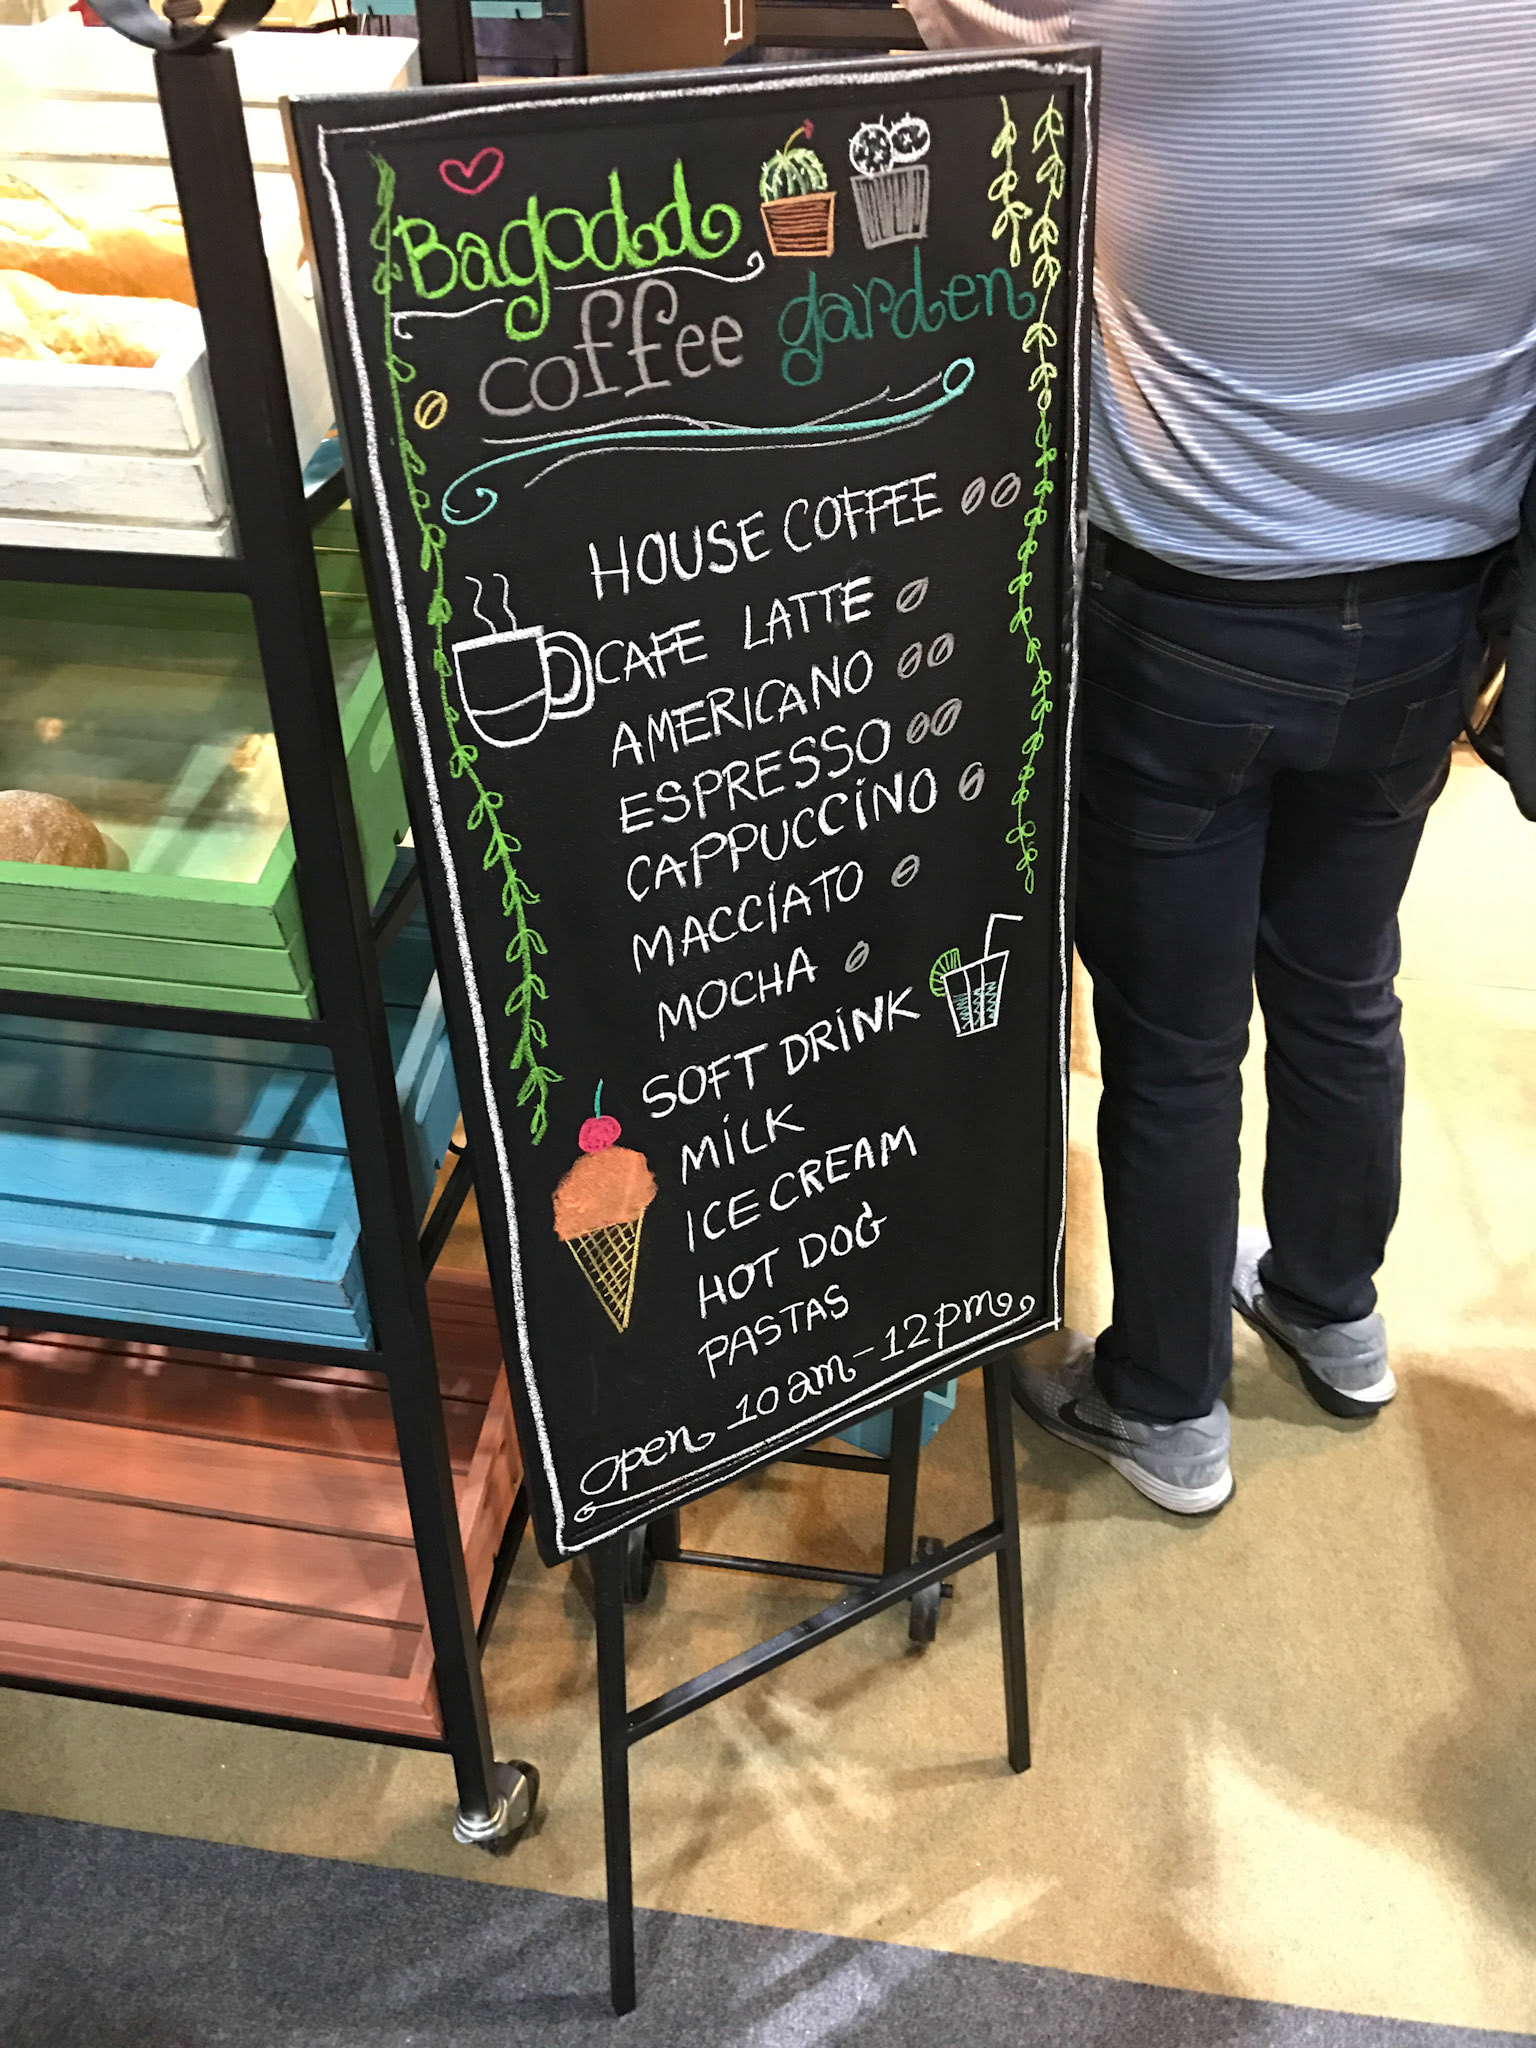 Bagodd
coffee garden
HOUSE COFFEE
CAFE LATTE
AMERICANO
ESPRESSO
CAPPUCCINO
MACCIATO
MOCHA
SOFT DRINK
MILK
ICE CREAM
HOT DOG
PASTAS
open 10 am - 12 pm